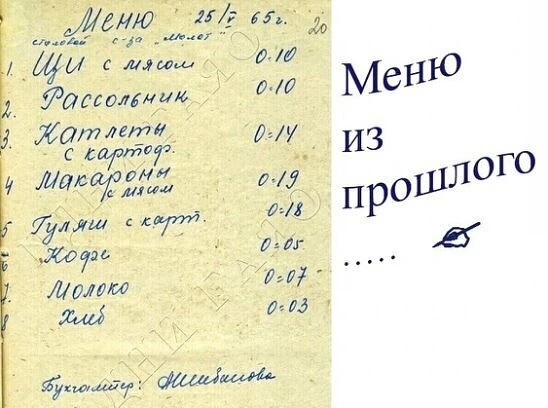 Меню 25/V 65г. 20
столовой с-за "Молот"
1. Щи с мясом 0=10
2. Рассольник 0=10
3. Катлеты 0=14
с картоф.
4 Макароны 0=19
с мясом
5 Гуляш с карт. 0=18
6 Кофе 0=05
7. Молоко 0=07
8 Хлеб 0=03
Бухгалтер:
Меню
из
прошлого
.....